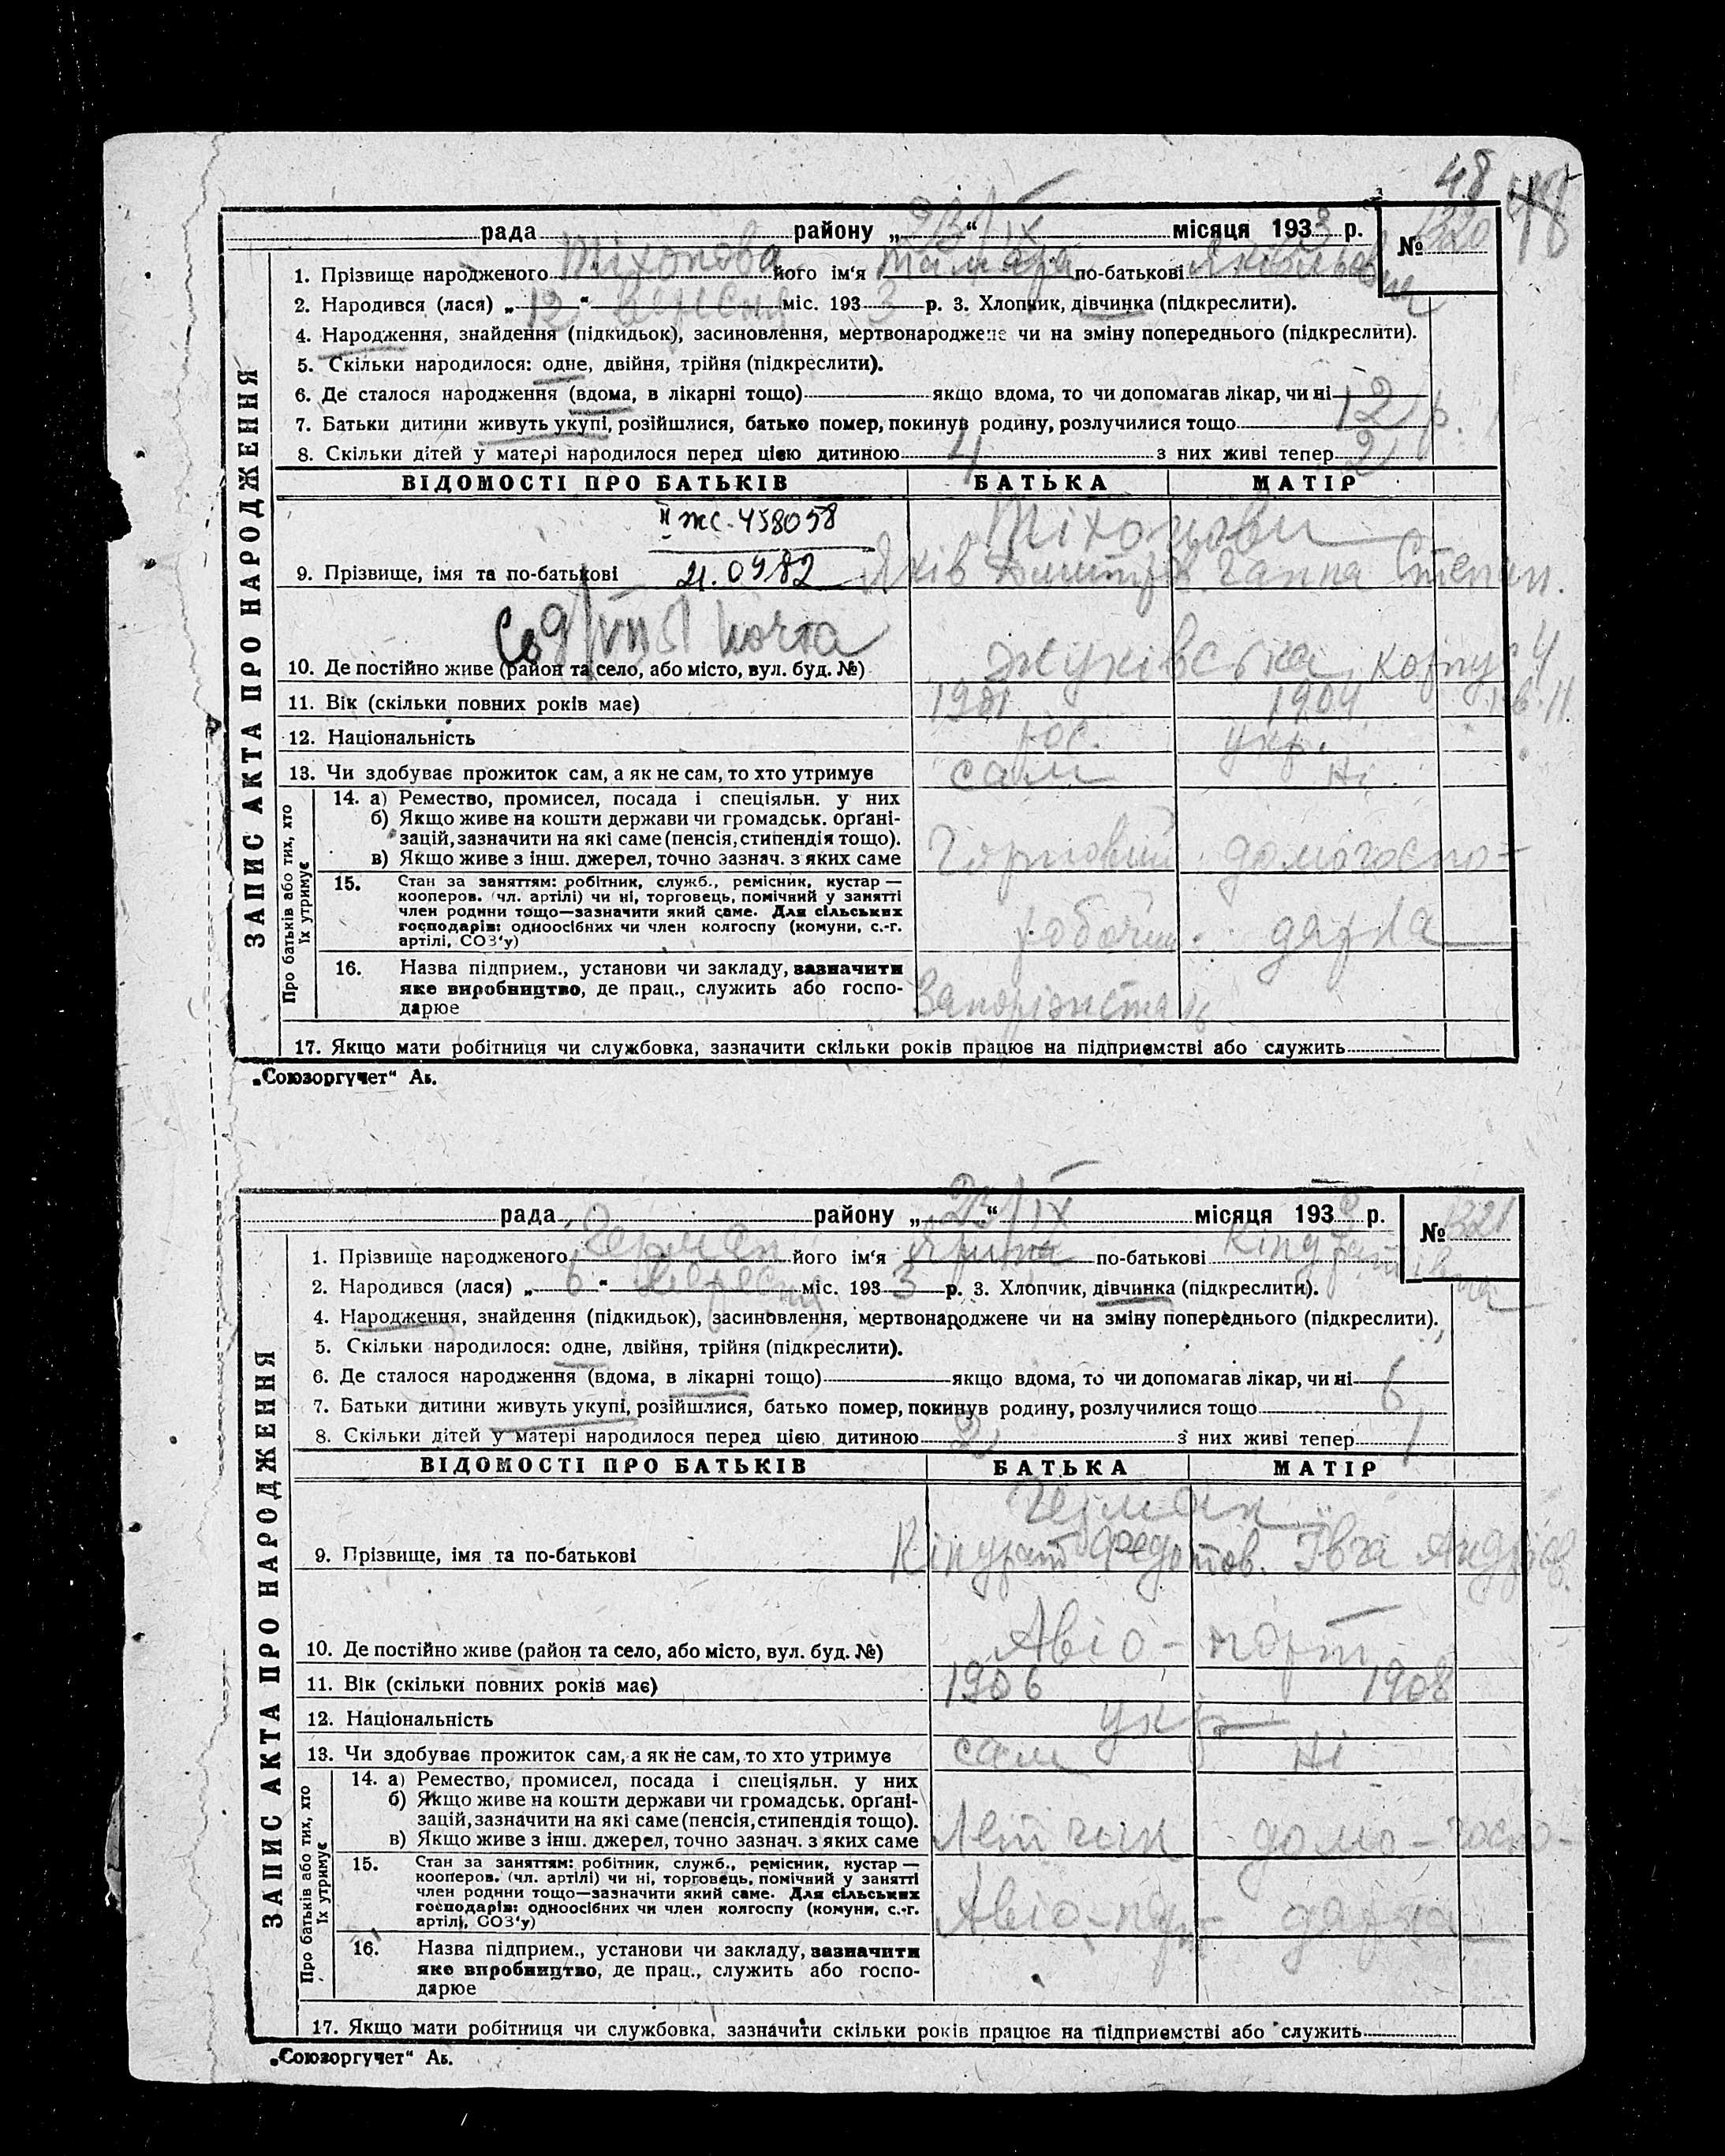 48 48
рада района „23/IX“ місяця 1933 р. № 1320
1. Прізвище народженого Тіхонова його ім‘я Тамара по-батькові Яківльовна
2. Народився (лася) „12“ вересня міс. 1933 р. 3. Хлопчик, дівчинка (підкреслити).
4. Народження, знайдення (підкидьок), засиновлення, мертвонароджене чи на зміну попереднього (підкреслити).
5. Скільки народилося: одне, двійня, трійня (підкреслити).
6. Де сталося народження (вдома, в лікарні тощо) якщо вдома, то чи допомагав лікар, чи ні
7. Батьки дитини живуть укупі, розійшлися, батько помер, покинув родину, розлучилися тощо 12 р.
8. Скільки дітей у матері народилося перед цією дитиною 4 з них живі тепер 2
ВІДОМОСТІ ПРО БАТЬКІВ БАТЬКА МАТІР
ЗАПИС АКТА ПРО НАРОДЖЕННЯ
II жс-458058
Тіхонови
9. Прізвище, імя та по-батькові 21.0982 Яків Дмитр. Ганна Степан.
VII почта
10. Де постійно живе (район та село, або місто, вул. буд. №) Жуківська корпус 4
11. Вік (скільки повних років має) 1901 1904 кв. 11
12. Національність рос. укр.
13. Чи здобуває прожиток сам, а як не сам, то хто утримує сам ні
Про батьків або тих, хто їх утримує
14. а) Ремество, промисел, посада і спеціяльн. у них
б) Якщо живе на кошти держави чи громадськ. орґані-
зацій, зазначити на які саме (пенсія, стипендія тощо).
в) Якщо живе з інш. джерел, точно зазнач. з яких саме домогоспо-
15. Стан за заняттям: робітник, служб., ремісник, кустар —
кооперов. (чл. артілі) чи ні, торговець, помічний у занятті
член родини тощо—зазначити який саме. Для сільських
господарів: одноосібних чи член колгоспу (комуни, с.-г.
артілі, СОЗ‘у) робочий дарка
16. Назва підприєм., установи чи закладу, зазначити
яке виробництво, де прац., служить або госпо-
дарює Запоріжсталь
17. Якщо мати робітниця чи службовка, зазначити скільки років працює на підприємстві або служить
„Союзоргучет“ Аб.
рада району „23/IX“ місяця 1933 р. № 1321
1. Прізвище народженого його ім‘я по-батькові
2. Народився (лася) „6“ вересня міс. 1933 р. 3. Хлопчик, дівчинка (підкреслити).
4. Народження, знайдення (підкидьок), засиновлення, мертвонароджене чи на зміну попереднього (підкреслити).
5. Скільки народилося: одне, двійня, трійня (підкреслити).
6. Де сталося народження (вдома, в лікарні тощо) якщо вдома, то чи допомагав лікар, чи ні 6
7. Батьки дитини живуть укупі, розійшлися, батько помер, покинув родину, розлучилися тощо
8. Скільки дітей у матері народилося перед цією дитиною 2 з них живі тепер 1
ВІДОМОСТІ ПРО БАТЬКІВ БАТЬКА МАТІР
ЗАПИС АКТА ПРО НАРОДЖЕННЯ
9. Прізвище, імя та по-батькові Кіндрат Федотов. Івга Андріев.
10. Де постійно живе (район та село, або місто, вул. буд. №) Авіо-порт
11. Вік (скільки повних років має) 1906 1908
12. Національність укр
13. Чи здобуває прожиток сам, а як не сам, то хто утримує сам ні
Про батьків або тих, хто їх утримує
14. а) Ремество, промисел, посада і спеціяльн. у них
б) Якщо живе на кошти держави чи громадськ. орґані-
зацій, зазначити на які саме (пенсія, стипендія тощо).
в) Якщо живе з інш. джерел, точно зазнач. з яких саме Летчик домо-госпо-
15. Стан за заняттям: робітник, служб., ремісник, кустар —
кооперов. (чл. артілі) чи ні, торговець, помічний у занятті
член родини тощо—зазначити який саме. Для сільських
господарів: одноосібних чи член колгоспу (комуни, с.-г.
артілі, СОЗ‘у) Авіо-порт дарка
16. Назва підприєм., установи чи закладу, зазначити
яке виробництво, де прац., служить або госпо-
дарює
17. Якщо мати робітниця чи службовка, зазначити скільки років працює на підприємстві або служить
„Союзоргучет“ Аб.